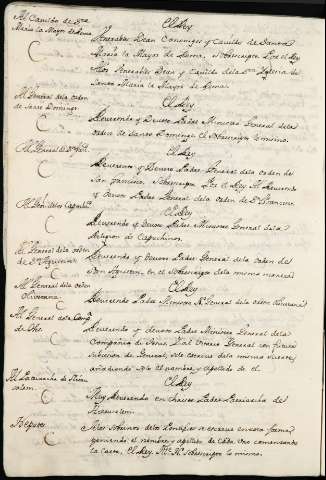 Al Cavildo de Sta
Maria la Mayor de Roma
El Rey
Venerables Dean Canonigos y Cavildo de Santa
Maria la Mayor de Roma, Sobrescripto Por el Rey
A los Venerables Dean y Cavildo de la Iglesia de
Santa Maria la Mayor de Roma.
Al General de la orden
de Santo Domingo
El Rey
Reverendo y Devoto Padre Ministro General de la
orden de Santo Domingo el Sobrescripto lo mismo.
El Rey
Reverendo y Devoto Padre General de la orden de
San Francisco, Sobrescripto Por el Rey Al Reverendo
y Devoto Padre General de la orden de Sn Francisco
El Rey
Reverendo y Devoto Padre Ministro General de la
Religion de Capuchinos.
Al General de la orden
de Sn Agustin
Reverendo y Devoto Padre General de la orden de
San Agustin, en el Sobrescripto de la misma manera
Al General de la orden
El Rey
Reverendo Padre General de la orden
Al General de la Comp
de Jhs
Reverendo y devoto Padre Ministro General de la
Compañia de Jesus, y al Vicario General con futura
subcesion de General, se le escrive de la misma suerte
añadiendo solo el nombre, y apellido de el
Al Patriarcha de Hieru
salem
El Rey
Muy Reverendo en Christo Padre Patriarcha de
Hierusalem.
Nepotes
A los sobrinos de los Pontifices se escrive en esta forma
poniendo el nombre, y apellido de cada Uno comenzando
la carta, El Rey, sobrescripto lo mismo.